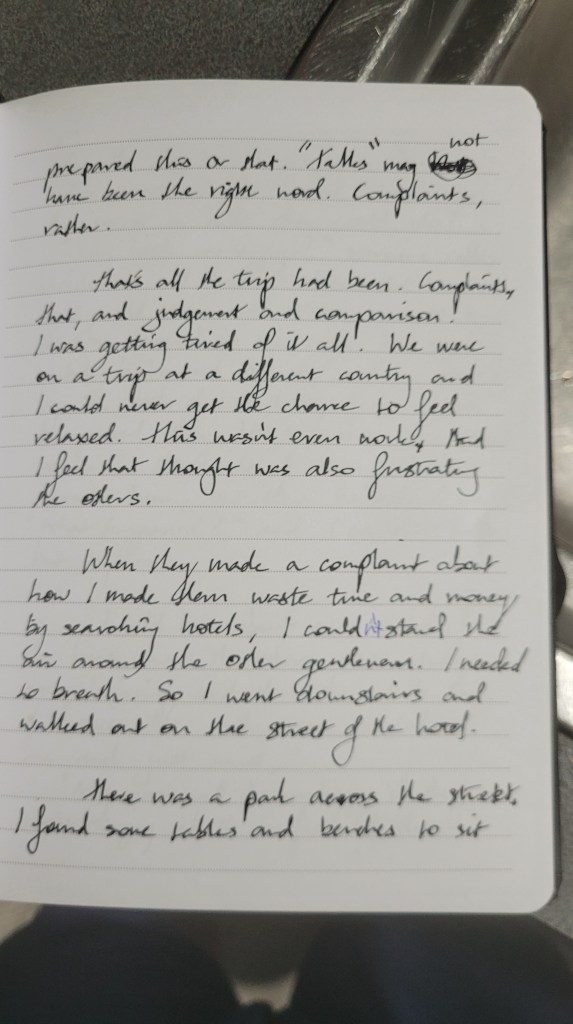 not
prepared this or that. "Talks" may
have been the right word. Complaints,
rather.
That's all the trip had been. Complaints,
that, and judgement and comparison!
I was getting tired of it all! We were
on a trip at a different country and
I could never get the chance to feel
relaxed. This wasn't even work, and
I feel that thought was also frustrating
the others.
When they made a complaint about
how I made them waste time and money
by searching hotels, I couldn't stand the
air around the other gentlemen. I needed
to breath. So I went downstairs and
walked out on the street of the hotel.
There was a park across the street.
I found some tables and benches to sit